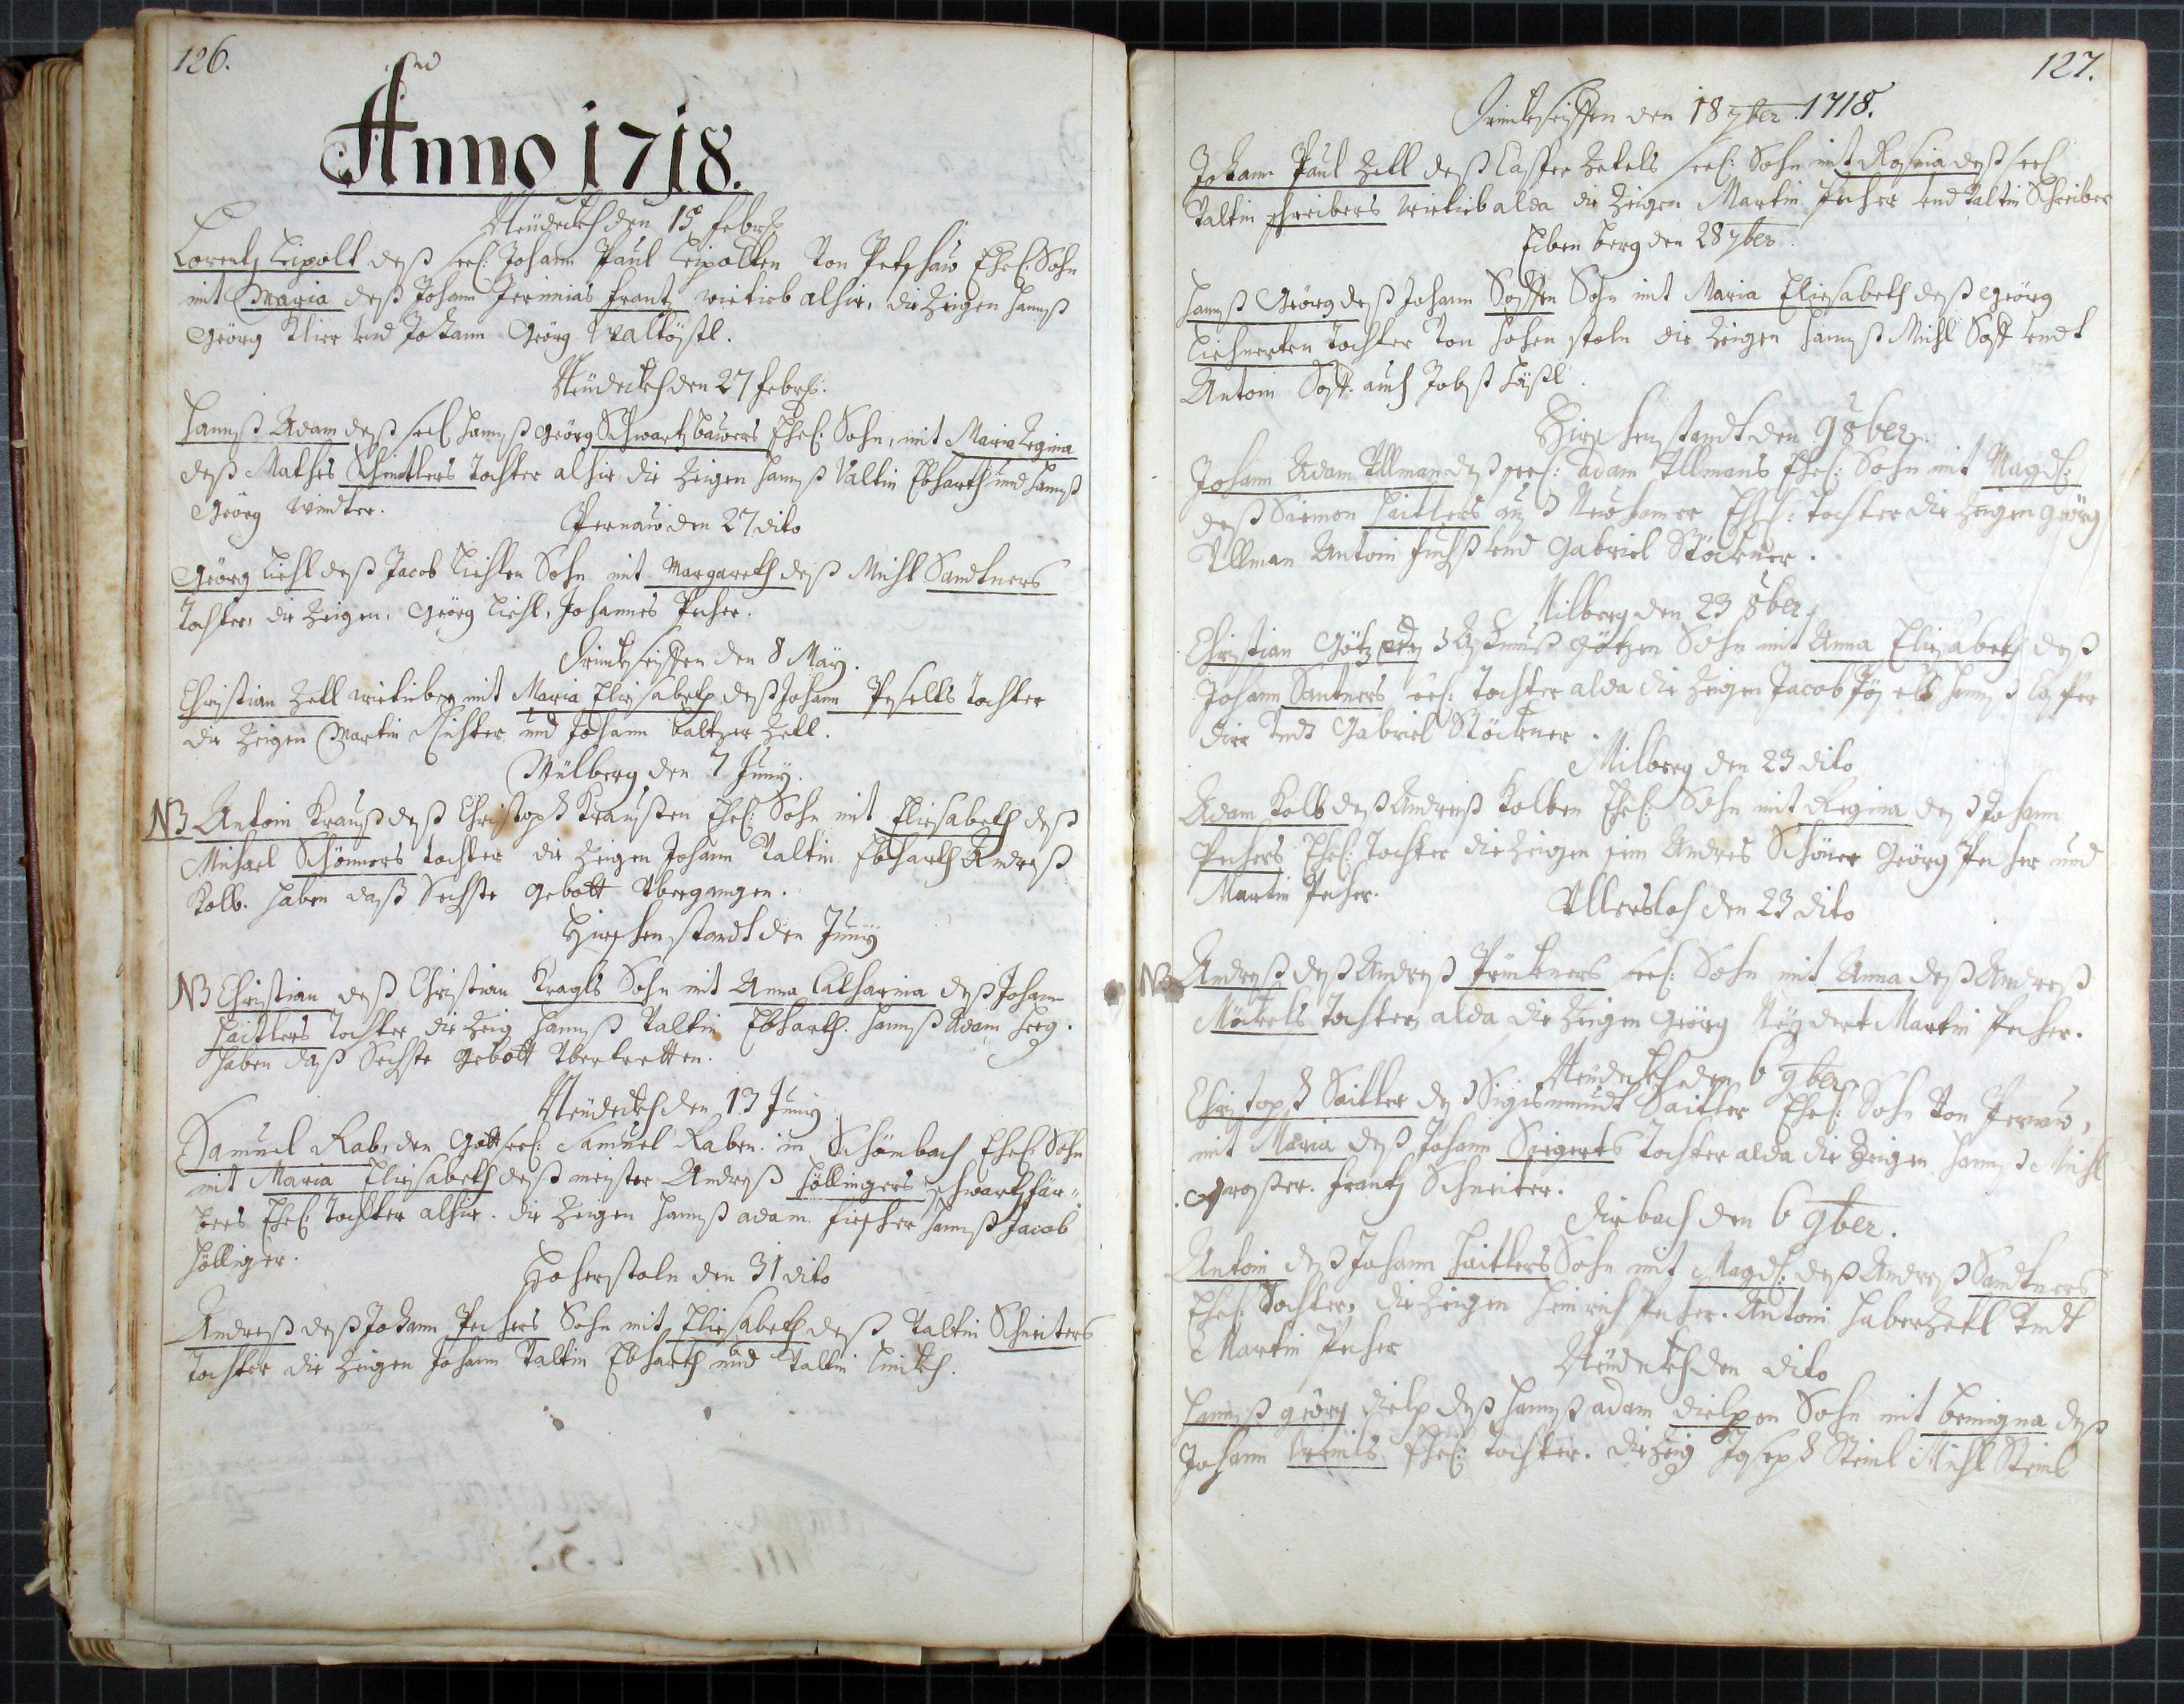 126.
Anno 1718.
Neüdeckh den 15 febr:
Lorentz Leipolt deß seel: Johann Paul Leipolten Von Petschaw Ehel: Sohn
mit Maria deß Johann Jeremias frantz wittieb alhier, die Zeigen Hannß
Geörg Klier und Johann Geörg
Neüdeckh den 27 febr:
Hannß Adam deß seel Hannß Geörg Schwartzbawers Ehel: Sohn, mit Maria Regina
deß Mathes Schindtlers Tochter alhier die Zeigen Hannß Valtin Ebharth und Hannß
Geörg Windter.
Pernaw den 27 dito
Geörg Liehl deß Jacob Liehlen Sohn mit Margareth deß Michl Sandtners
Tochter, die Zeigen, Geörg Liehl, Johannes Pecher.
Trinckseiffen den 8 May.
Christian Zettl wittieber mit Maria Eliesabeth deß Johann Tochter
die Zeigen Martin Richter und Johann Baltzer Zettl.
Mülberg den 7 Juny.
NB Antoni Krauß deß Christoph Kraußen Ehel: Sohn mit Eliesabeth deß
Michael Schönners tochter die Zeigen Johann Valtin Ebharth Andreß
Kolb. haben daß Sechste gebott Vbergangen.
Hirschenstandt den Juny
NB Christian deß Christian Kragls Sohn mit Anna Catharina deß Johann
Haitlers Tochter die Zeig Hannß Valtin Ebharth. Hannß Adam
haben daß Sechste gebott Vbertretten.
Neüdeckh den 13 Juny
Samuel Rab, den Gott seel: Samuel Raben. in Schönbach Ehel: Sohn
mit Maria Eliesabeth deß meister Andreß Höllingers schwartzfär=
bers Ehel: Tochter alhier. die Zeigen Hannß adam fischer Hannß Jacob
Hölliger.
Hocherstoln den 31 dito
Andreß deß Johann Pechers Sohn mit Eliesabeth deß Valtin Schneiters
Tochter die Zeigen Johann Valtin Ebharth und Valtin
127.
Trinckseiffen den 18 7ber. 1718.
Johann Paul Zettl deß Casper Zetels seel: Sohn mit Rosina deß seel
Valtin schreibers wittieb alda die Zeigen Martin Pecher und Valtin Schreiber
Eiben berg den 28 7ber.
Hannß Geörg deß Johann Sohn mit Maria Eliesabeth deß Geörg
Liehnerten Tochter Von Hohen stoln die Zeigen Hannß Michl undt
Antoni auch Jobst
Hirschenstandt den 9 8ber
Johann Adam Ullman deß seel: adam Ullmans Ehel: Sohn mit Magdl:
deß Siemon Haitlers auß Newhamer Ehel: Tochter die Zeigen Geörg
Ullman Antoni fuchß und Gabriel Stöckner.
Milberg den 23 8ber.
Christian Götz deß Götzen Sohn mit Anna Eliesabeth deß
Johann Santners seel: Tochter alda die Zeigen Jacob Hannß Casper
Vndt Gabriel Stöckner.
Milberg den 23 dito
Adam Kolb deß Andreß Kolben Ehel: Sohn mit Regina deß Johann
Pechers Ehel: Tochter die Zeigen sein Andres Schöner Geörg Pecher und
Martin Pecher.
Ullersloh den 23 dito
NB Andreß deß Andreß Prückners seel: Sohn mit Anna deß Andreß
Möckels Tochter alda die Zeigen Geörg Neydert Martin Pecher.
Neüdeckh den 6 9ber.
Christoph Saitler deß Sigismundt Saitler Ehel: Sohn Von Pernaw,
mit Maria deß Johann Siegerts Tochter alda die Zeigen Hannß Michl
frantz Schneiter.
Dirbach den 6 9ber.
Antoni deß Johann Haitlers Sohn mit Magdl: deß Andreß Sandtners
Ehel: Tochter, die Zeigen Heinrich Pecher. Antoni Haberzettl Vndt
Martin Pecher
Neüdeckh den dito
Hannß geörg dielp deß Hannß adam Sohn mit benigna deß
Johann Ehel: Tochter. die Zeig Joseph Steinl Michl Steinl